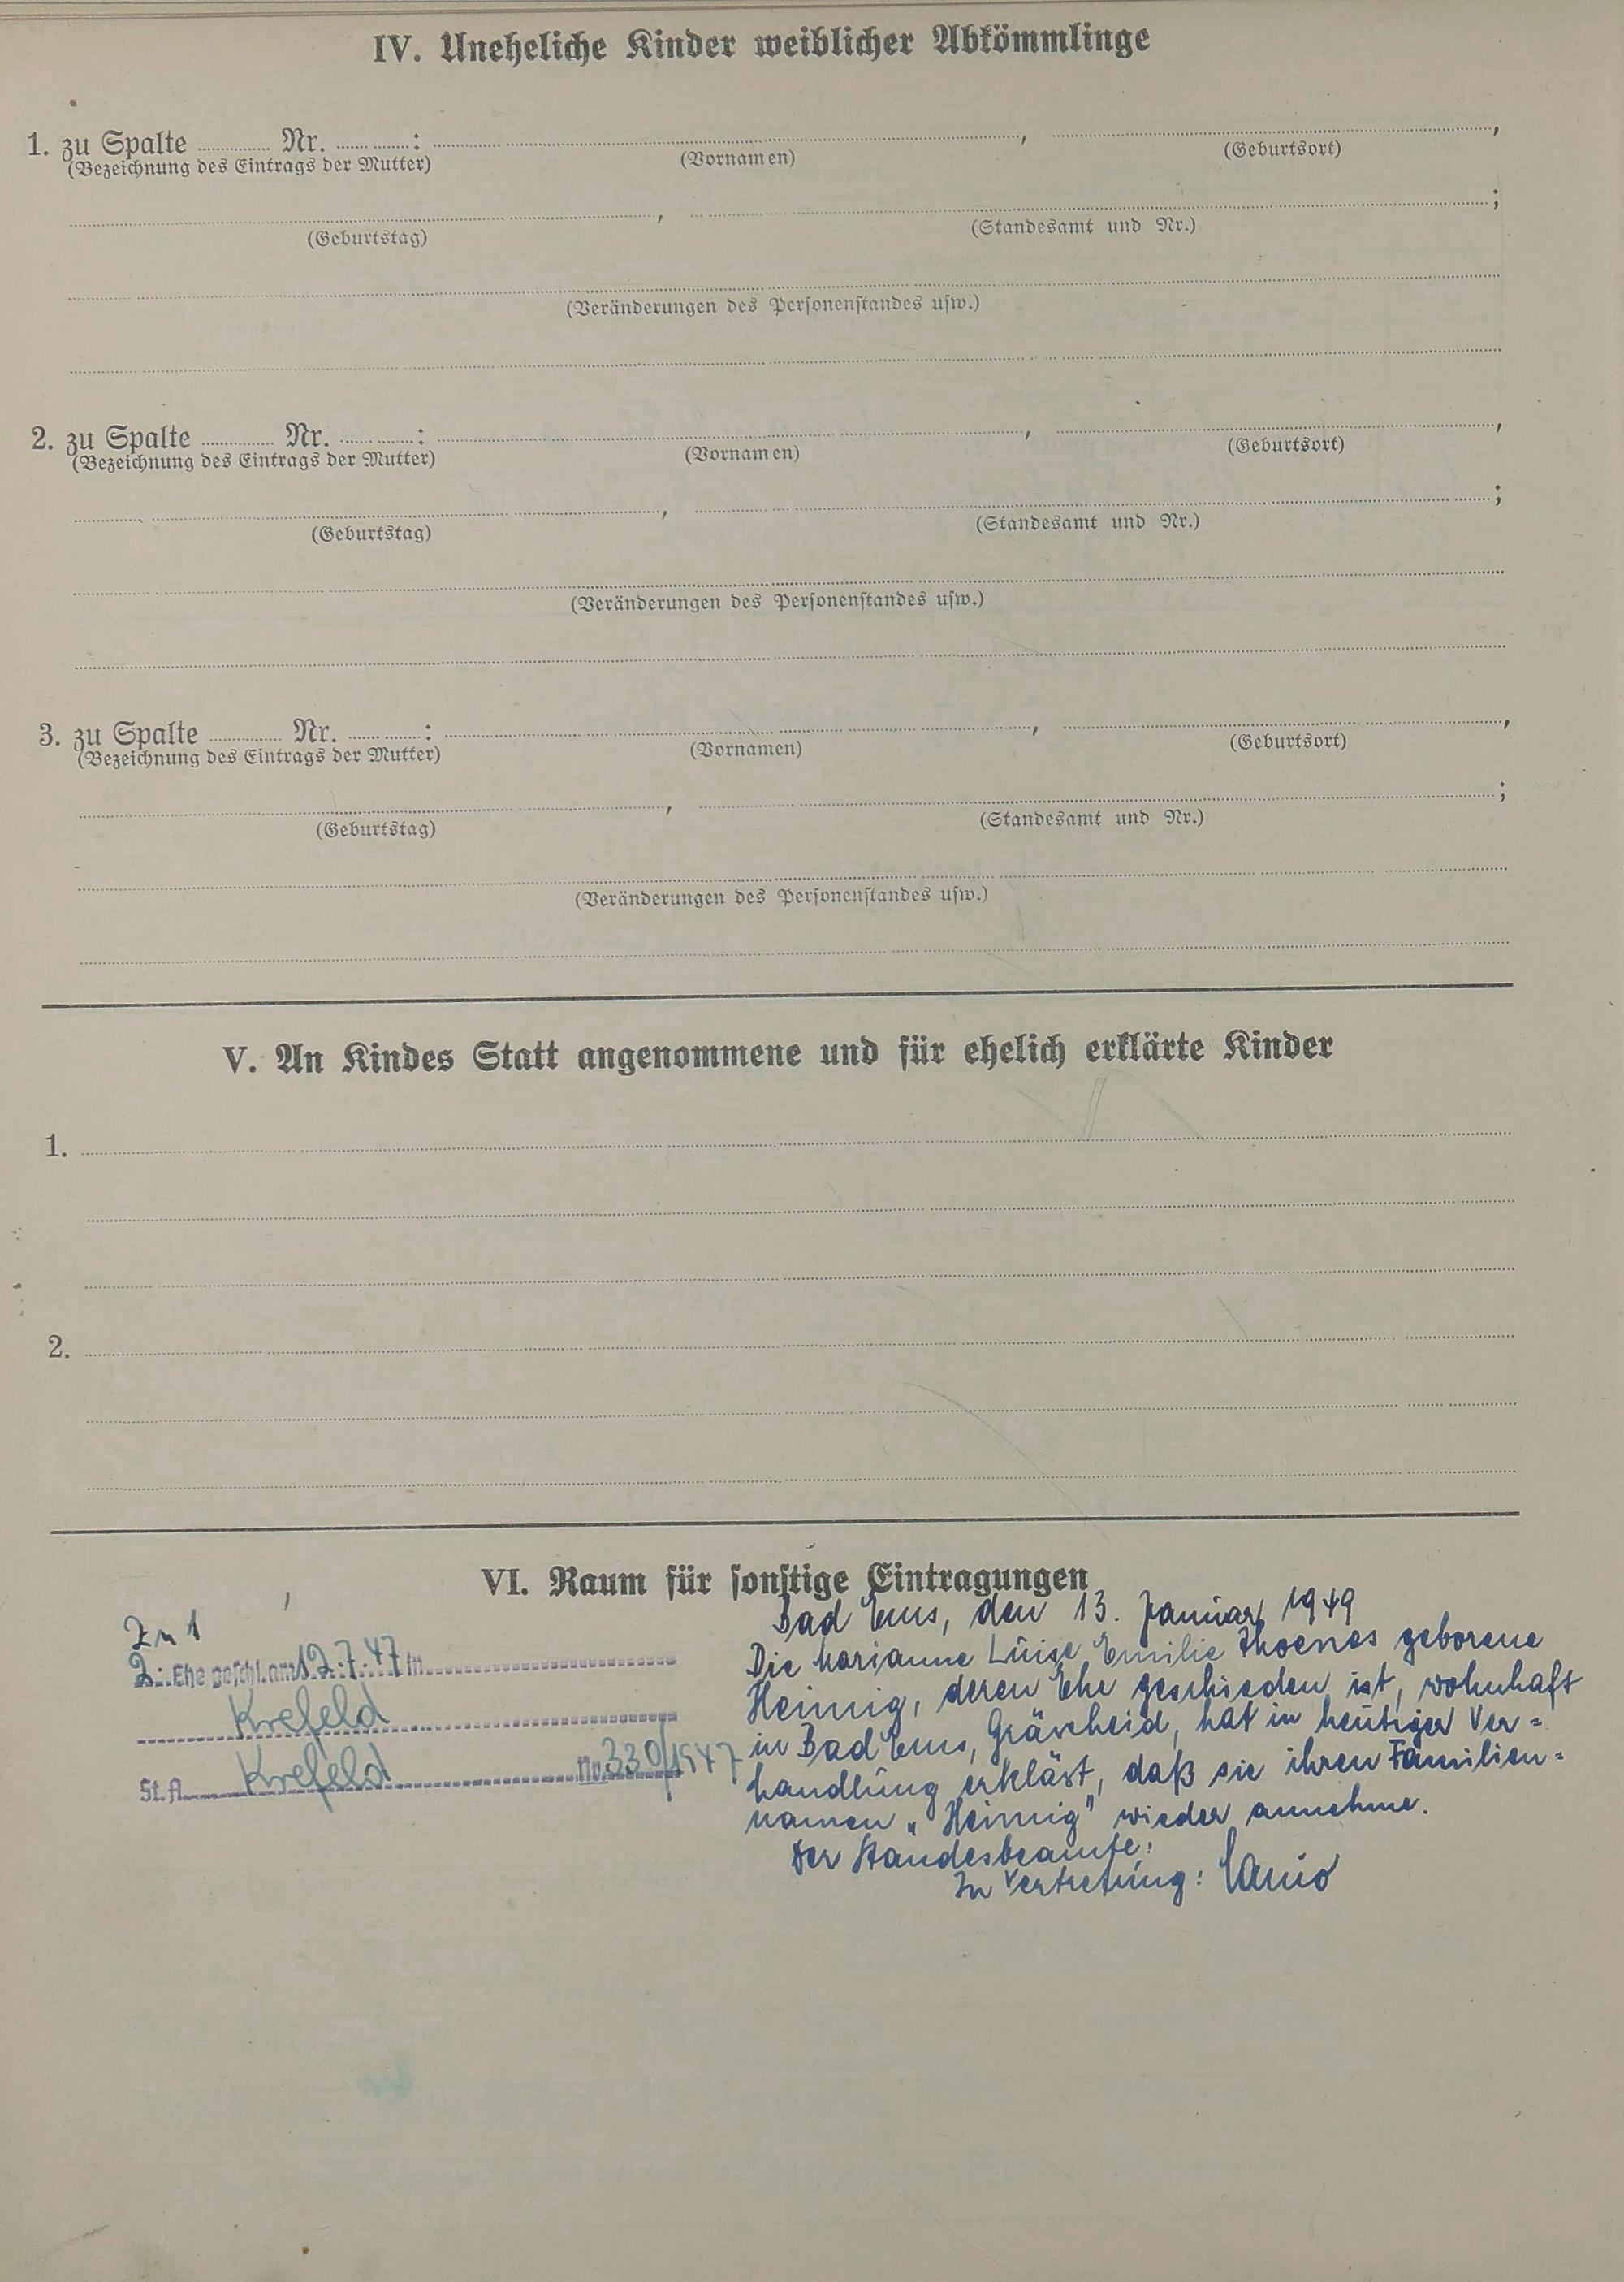 IV. Uneheliche Kinder weiblicher Abkömmlinge
1. zu Spalte ............ Nr. ............ : ............ , ............ ,
(Bezeichnung des Eintrags der Mutter) (Vornamen) (Geburtsort)
............ , ............ ;
(Geburtstag) (Standesamt und Nr.)
(Veränderungen des Personenstandes usw.)
2. zu Spalte ............ Nr. ............ : ............ , ............ ,
(Bezeichnung des Eintrags der Mutter) (Vornamen) (Geburtsort)
............ , ............ ;
(Geburtstag) (Standesamt und Nr.)
(Veränderungen des Personenstandes usw.)
3. zu Spalte ............ Nr. ............ : ............ , ............ ,
(Bezeichnung des Eintrags der Mutter) (Vornamen) (Geburtsort)
............ , ............ ;
(Geburtstag) (Standesamt und Nr.)
(Veränderungen des Personenstandes usw.)
V. An Kindes Statt angenommene und für ehelich erklärte Kinder
1.
2.
VI. Raum für sonstige Eintragungen
Zu 1
2. Ehe geschl. am 12.7.47 in
Krefeld
St. A. Krefeld Nr. 330/1947
Bad Ems, den 13. Januar 1949
Die Marianne Luise Emilie Thoenes geborene
Heinnig, deren Ehe geschieden ist, wohnhaft
in Bad Ems, hat in heutiger Ver=
handlung erklärt, daß sie ihren Familien=
namen „Heinnig" wieder annehme.
Der Standesbeamte:
In Vertretung: